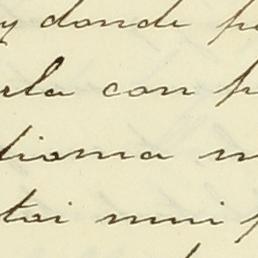 y donde
rla con p
dioma
toi mui p